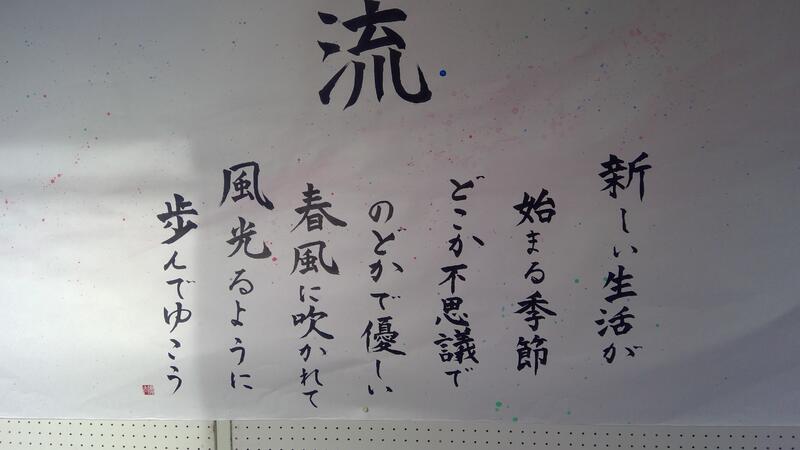 流
新しい生活が
始まる季節
どこか不思議で
のどかで優しい
春風に吹かれて
風光るように
歩んでゆこう